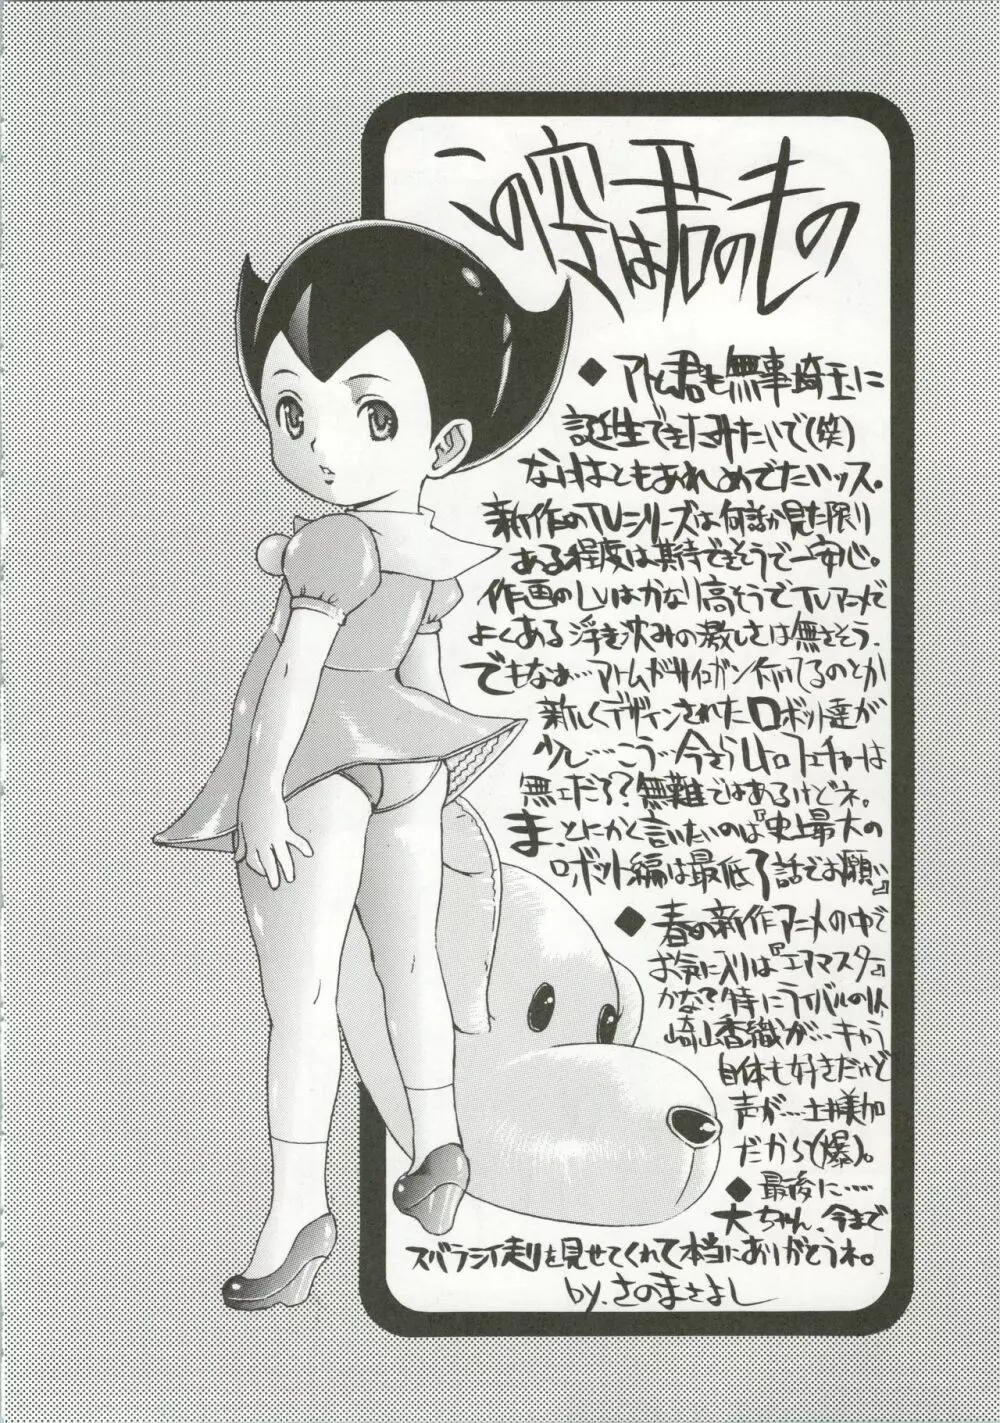 この空は君のもの
◆アトム君も無事埼玉に
誕生できたみたいで(笑)
なにはともあれめでたいッス。
新作のTVシリーズは何話か見た限り
ある程度は期待できそうで一安心。
作画のLVはかなり高そうでTVアニメで
よくある浮き沈みの激しさは無さそう。
でもなぁ…アトムがサイコガン付いてるのとか
新しくデザインされたロボット達が
少し…こう…今さらレトロフューチャーは
無ェだろ?無難ではあるけどネ。
ま、とにかく言いたいのは『史上最大の
ロボット編は最低7話でお願い』
◆春の新作アニメの中で
お気に入りは『エアマスター』
かな?特にライバルの1人
崎山香織が…キャラ
自体も好きだけど
声が…土様加
だから(爆)。
◆最後に……
大ちゃん、今まで
スバラシイ走りを見せてくれて本当にありがとうネ。
by.さのまさよし